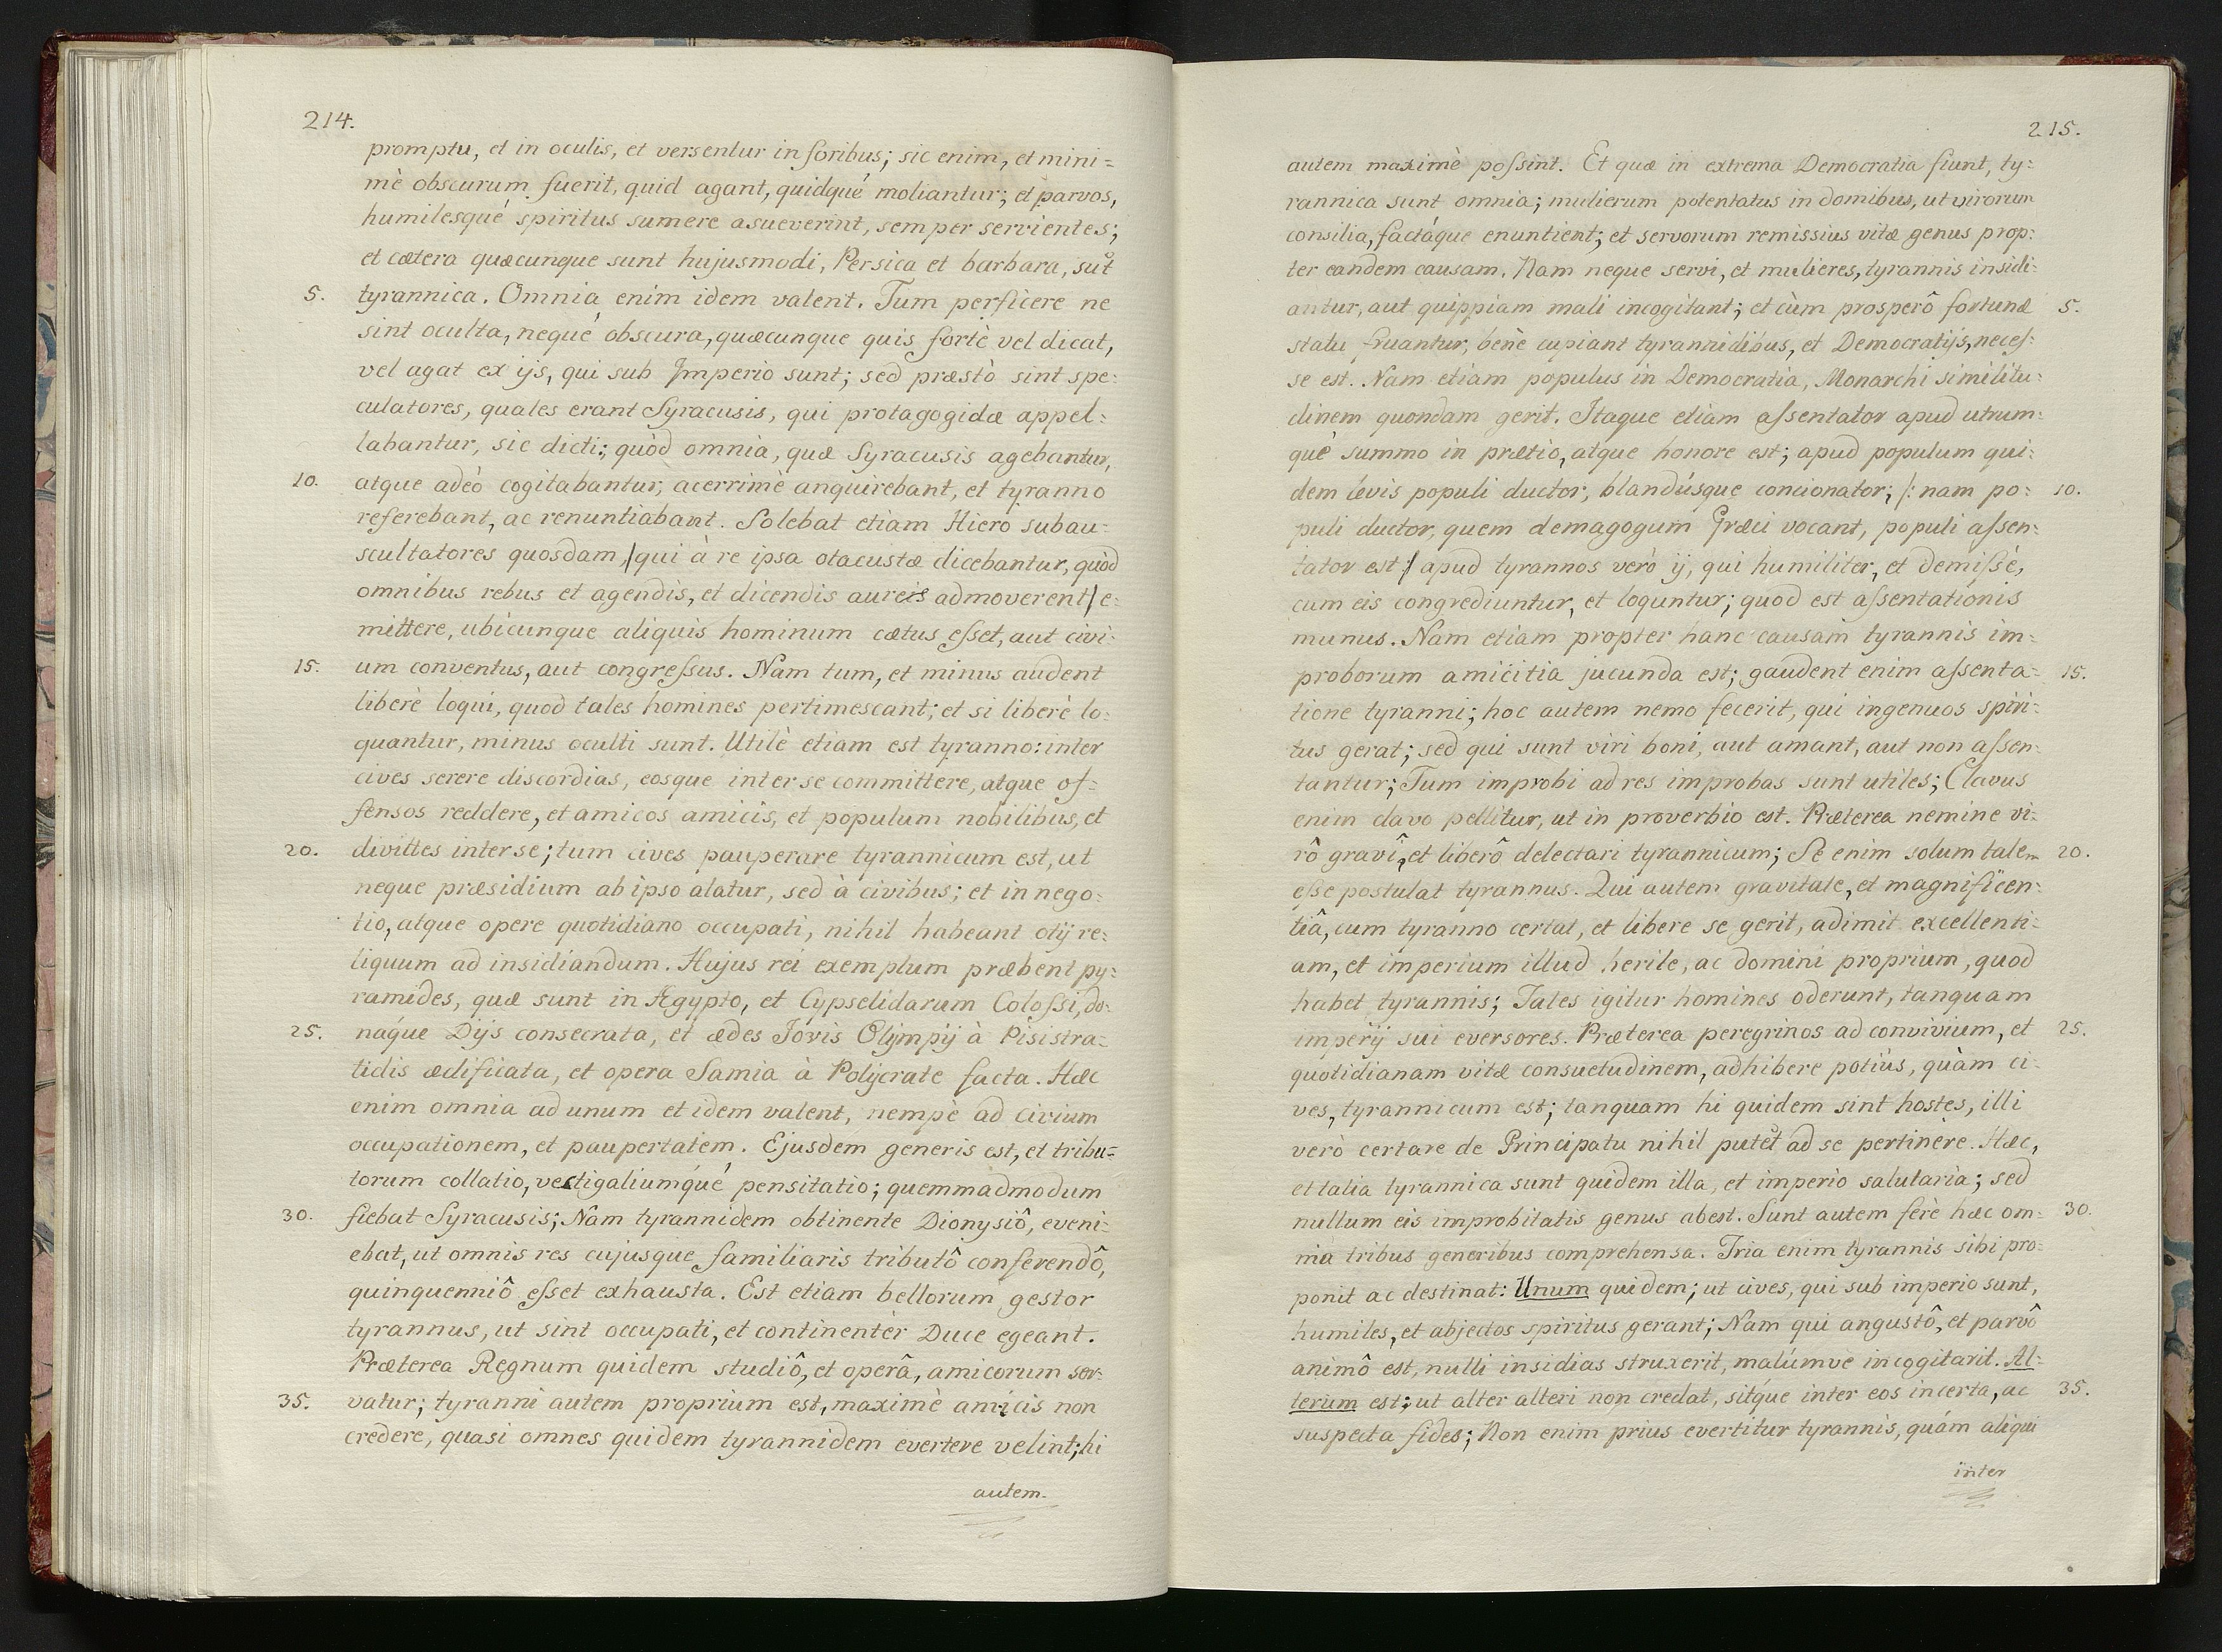 214.
promptu, et in oculis, et versentur in foribus; sic enim, et mini=
mè obscurum fuerit, quid agant, quidqué moliantur; et parvos,
humilesqué spiritus sumere asueverint, semper servientes;
et cætera quæcunque sunt hujusmodi, Persica et barbara, sut
5. tyrannica. Omnia enim idem valent. Tum perficere ne
sint oculta, nequé obscura, quæcunque quis fortè vel dicat,
vel agat ex ijs, qui sub Imperio sunt; sed præstò sint spe:
culatores, quales erant Syracusis, qui protagogidæ appel:
labantur, sic dicti; quòd omnia, quæ Syracusis agebantur,
10. atque adeò cogitabantur, acerrimè anquirebant, et tyranno
referebant, ac renuntiabant. Solebat etiam Hiero subau=
scultatores quosdam, /qui à re ipsa otacustæ dicebantur, quòd
omnibus rebus et agendis, et dicendis aureis admoverent/ e:
mittere, ubicunque aliquis hominum cætus esset, aut civi:
15. um conventus, aut congressus. Nam tum, et minus audent
liberè loqui, quod tales homines pertimescant; et si liberè lo:
quantur, minus oculti sunt. Utilè etiam est tyranno: inter
cives serere discordias, eosque inter se committere, atque of=
fensos reddere, et amicos amicis, et populum nobilibus, et
20. divittes inter se; tum cives pauperare tyrannicum est, ut
neque præsidium ab ipso alatur, sed à civibus; et in nego:
tio, atque opere quotidiano occupati, nihil habeant otij re:
liquum ad insidiandum. Hujus rei exemplum præbent py:
ramides, quæ sunt in Ægypto, et Cypselidarum Colossi, do:
25. náque Dijs consecrata, et ædes Jóvis Olijmpij à Pisistra=
tidis ædificata, et opera Samia à Polijcrate facta. Hæc
enim omnia ad unum et idem valent, nempè ad civium
occupationem, et paupertatem. Ejusdem generis est, et tribu=
torum collatio, vectigaliumqúé pensitatio; quemmadmodum
30. fiebat Syracusis; Nam tyrannidem obtinente Dionysiô, eveni:
ebat, ut omnis res cujusque familiaris tributô conferendô,
quinquenniô esset exhausta. Est etiam bellorum gestor
tyrannus, ut sint occupati, et continentèr Duce egeant.
Præterea Regnum quidem studiô, et operâ, amicorum ser:
35. vatur; tyranni autem proprium est, maximè amicis non
credere, quasi omnes quidem tyrannidem evertere velint; hi
autem
215.
autem maximè possint. Et quæ in extrema Democratia fiunt, ty:
rannica sunt omnia; mulierum potentatus in domibus, ut virorum
consilia, factáque enuntient; et servorum remissius vitæ genus prop:
ter eandem causam. Nam neque servi, et mulieres, tyrannis insidi:
antur, aut quippiam mali incogitant; et cùm prosperô fortunæ 5.
statu fruantur, bène cupiant tyrannidibus, et Democratijs, neces:
se est. Nam etiam populus in Democratia, Monarchi similitu:
dinem quondam gerit. Itaque etiam assentator apud utrum:
què summo in prætio, atque honore est; apud populum qui:
dem levis populi ductor, blandúsque concionator; /: nam po: 10.
puli ductor, quem demagogum Græci vocant, populi assen:
tator est / apud tyrannos verò ij, qui humiliter, et demissè,
cum eis congrediuntur, et loquntur; quod est assentationis
munus. Nam etiam propter hanc causam tyrannis im:
proborum amicitia jucunda est; gaudent enim assenta= 15.
tione tyranni; hoc autem nemo fecerit, qui ingenuos spiri:
tus gerat; sed qui sunt viri boni, aut amant, aut non assen:
tantur; Tum improbi ad res improbas sunt utiles; Clavus
enim clavo pellitur, ut in proverbio est. Præterea nemine vi:
rô gravî, et liberô delectari tyrannicum; Se enim solum talem 20.
esse postulat tyrannus. Qui autem gravitate, et magnificen:
tiâ, cum tyranno certat, et libere se gerit, adimit excellenti:
am, et imperium illud herile, ac domini proprium, quod
habet tyrannis; Tales igitur homines oderunt, tanquam
imperij sui eversores. Præterea peregrinos ad convivium, et 25.
quotidianam vitæ consuetudinem, adhibere potiùs, quàm ci:
ves, tyrannicum est; tanquam hi quidem sint hostes, illi
verò certare de Principatu nihil putet ad se pertinère. Hæc,
et talia tyrannica sunt quidem illa, et imperio salutaria; sed
nullum eis improbitatis genus abest. Sunt autem ferè hæc om: 30.
nia tribus generibus comprehensa. Tria enim tyrannis sibi pro:
ponit ac destinat: Unum quidem; ut cives, qui sub imperio sunt,
humiles, et abjectos spiritus gerant; Nam qui angustô, et parvô
animô est, nulli insidias struxerit, malúmve incogitarit. Al:
terum est; ut alter alteri non credat, sitque inter eos incerta, ac 35.
suspecta fides; Non enim prius evertitur tyrannis, quám aliqui
inter